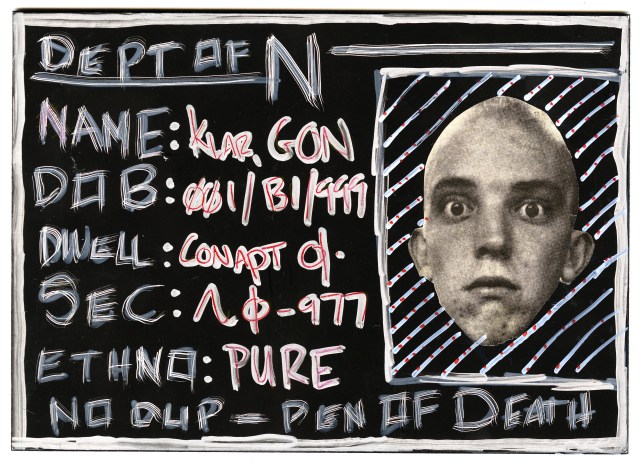 DEPT OF N
NAME: KLAR, GON
DOB: ØØ1/B1/999
DWELL: CONAPT Ø.
SEC: Λ Ø-977
ETHNO: PURE
NO DUP - PEN OF DEATH